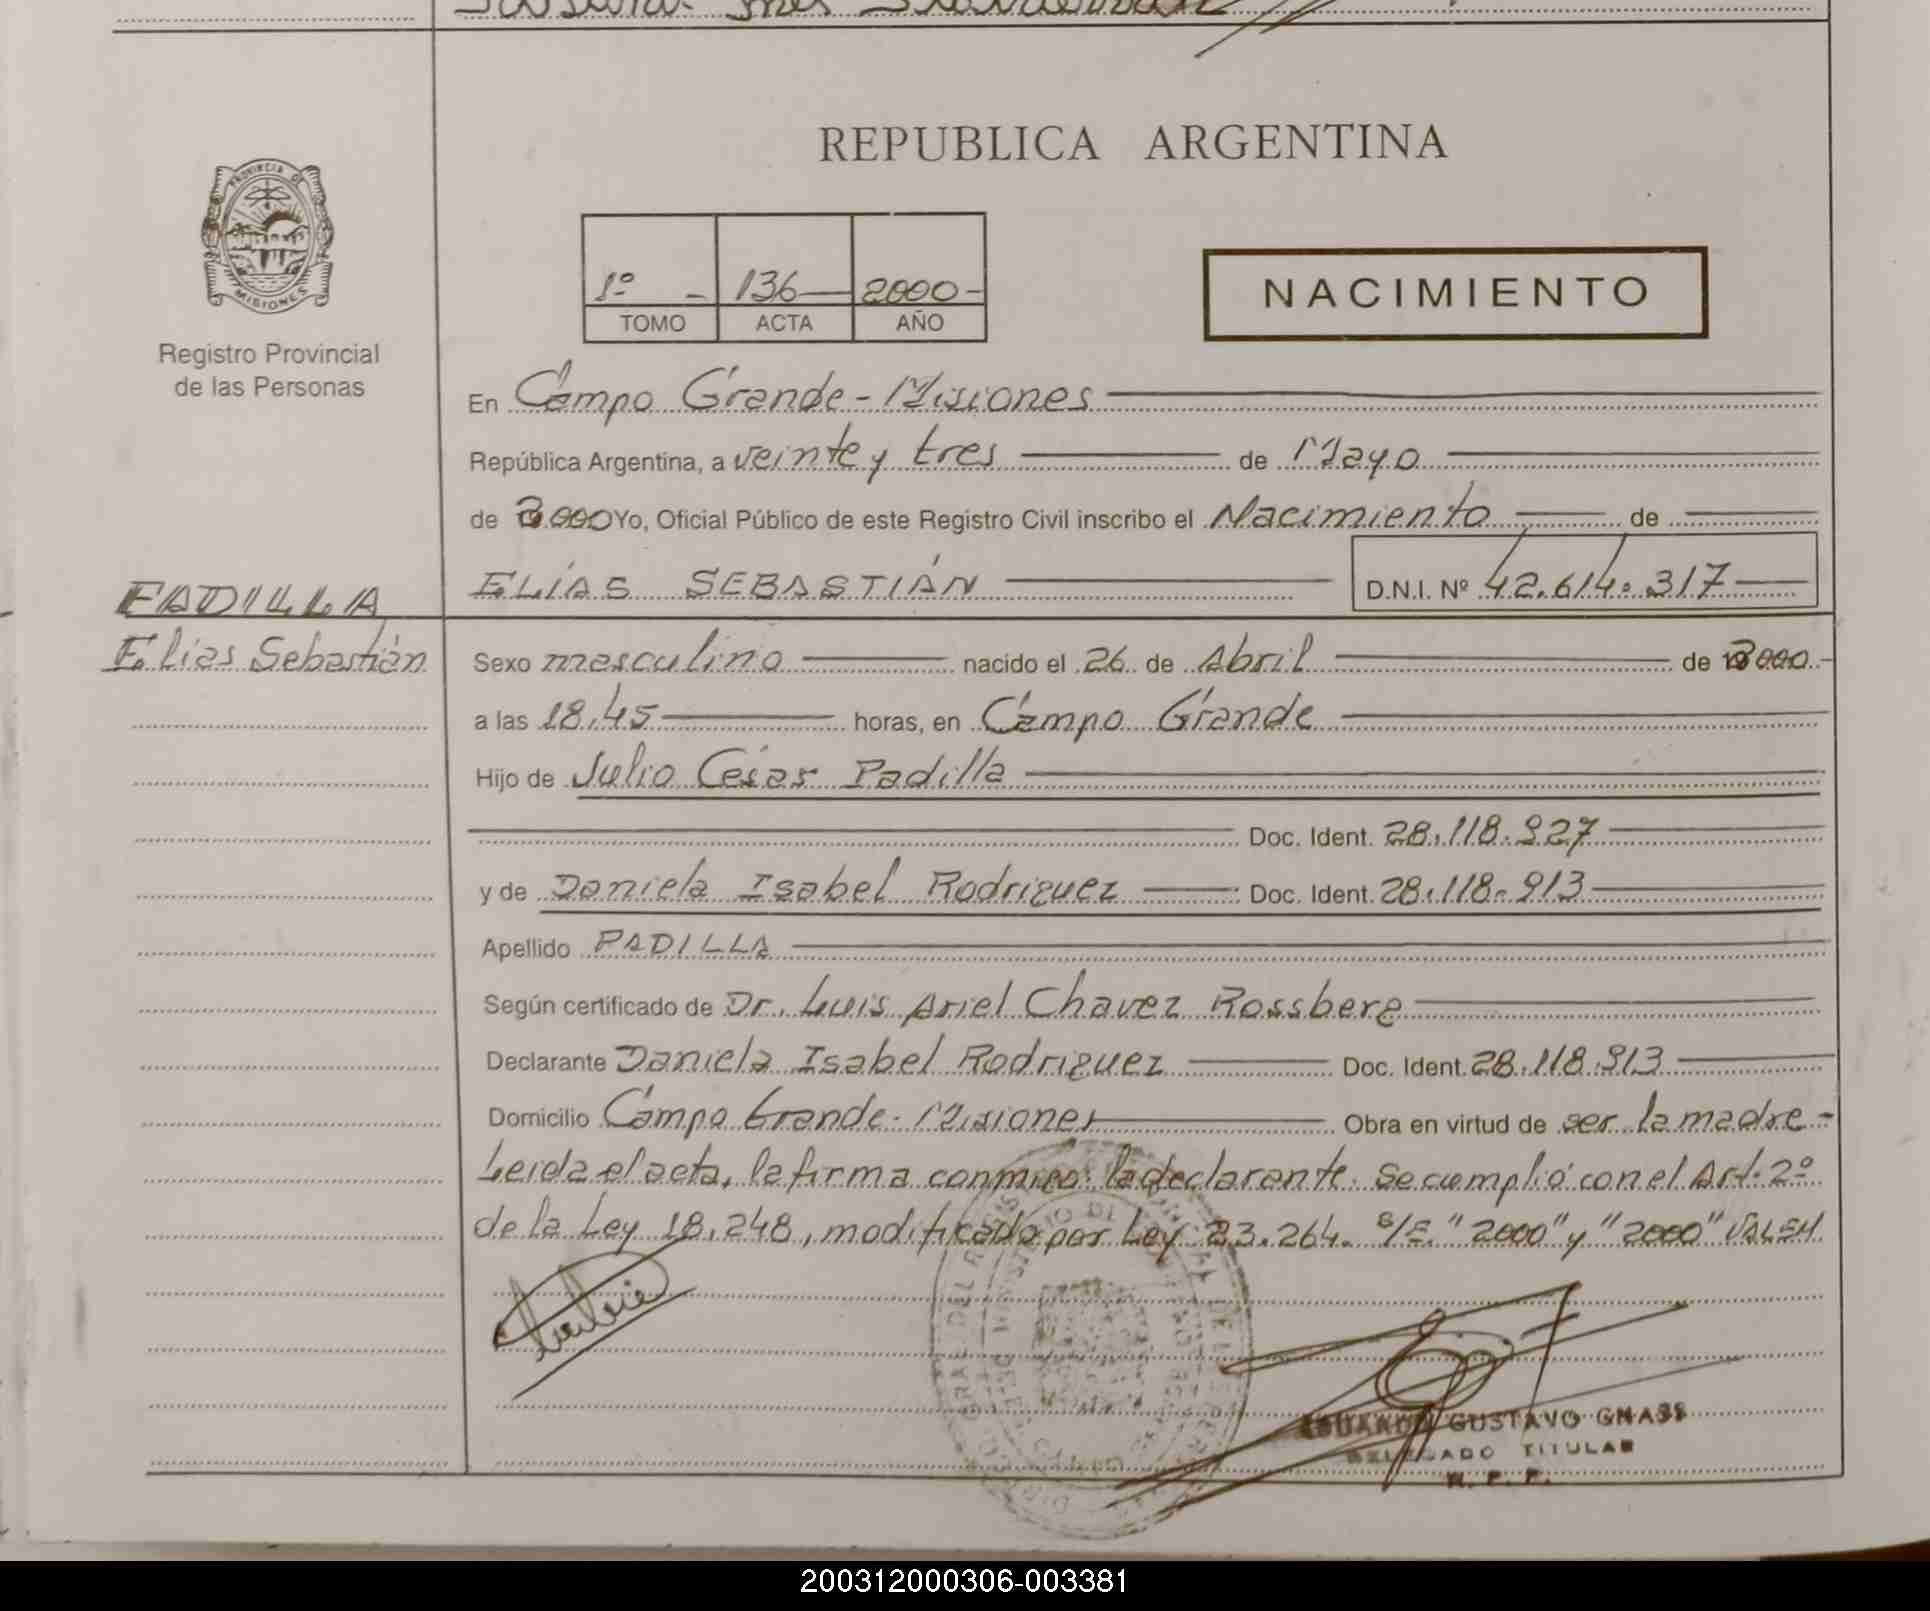 REPUBLICA ARGENTINA
PROVINCIA DE
MISIONES
Registro Provincial
de las Personas
1º - 136 2000-
TOMO ACTA AÑO
NACIMIENTO
En Campo Grande - Misiones
República Argentina, a veinte y tres de Mayo
de 2000 Yo, Oficial Público de este Registro Civil inscribo el Nacimiento de
ELÍAS SEBASTIÁN D.N.I. Nº 42.614.317
PADILLA
Elías Sebastián
Sexo masculino nacido el 26 de Abril de 2000.-
a las 18,45 horas, en Campo Grande
Hijo de Julio César Padilla
Doc. Ident. 28.118.927
y de Daniela Isabel Rodriguez Doc. Ident. 28.118.913
Apellido PADILLA
Según certificado de Dr. Luis Ariel Chavez Rossberg
Declarante Daniela Isabel Rodriguez Doc. Ident. 28.118.913
Domicilio Campo Grande - Misiones Obra en virtud de ser la madre -
Leída el acta, la firma conmigo la declarante. Se cumplió con el Art. 2º
de la Ley 18.248, modificado por Ley 23.264. S/E. "2000" y "2000" VALEN.
GUSTAVO GNASS
DELEGADO TITULAR
R. P. P.
200312000306-003381